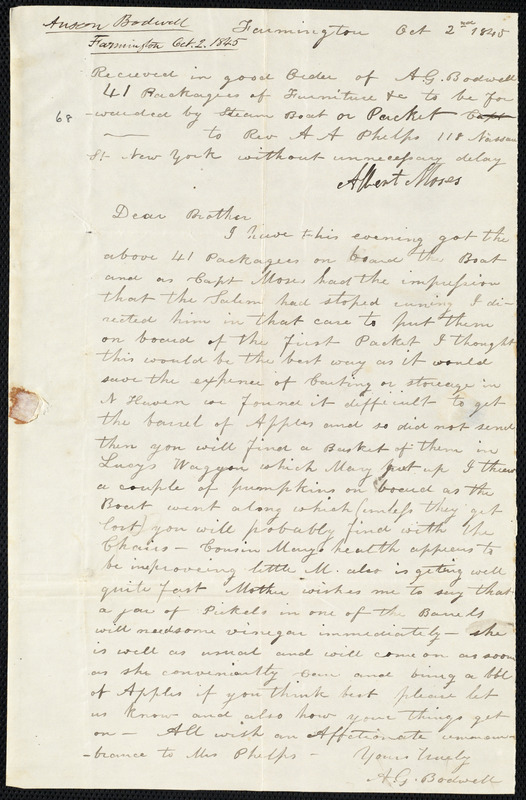 Anson Bodwell
Farmington Oct. 2. 1845
Farmington Oct 2nd 1845
Recieved in good Order of A.G. Bodwell
41 Packagees of Furniture &c to be for
68
-warded by Steam Boat or Packet Capt
—— to Rev A A Phelps 118 Nassau
St- New York without unnecessary delay
Albert Moses
Dear Brother
I have this evening got the
above 41 Packagees on board the Boat
and as Capt Moses had the impression
that the Salem had stoped runing I di-
rected him in that case to put them
on board of the first Packet I thought
this would be the best way as it would
save the expense of Carting or storeage in
N Haven we found it difficult to get
the barrel of Apples and so did not send
them you will find a Basket of them in
Lucys Waggon which Mary put up I threw
a couple of pumpkins on board as the
Boat went along which (unless they get
lost) you will probably find with the
Chairs - Cousin Marys health appears to
be improveing little M. also is geting well
quite fast Mother wishes me to say that
a jar of Pickels in one of the Barrels
will need some vinegar immediately - she
is well as usual and will come on as soon
as she conveniantly can and bring a bbl
of Apples if you think best please let
us know and also how your things get
on - All with an Affctionate remem
-brance to Mrs Phelps - Yours truly
A.G. Bodwell